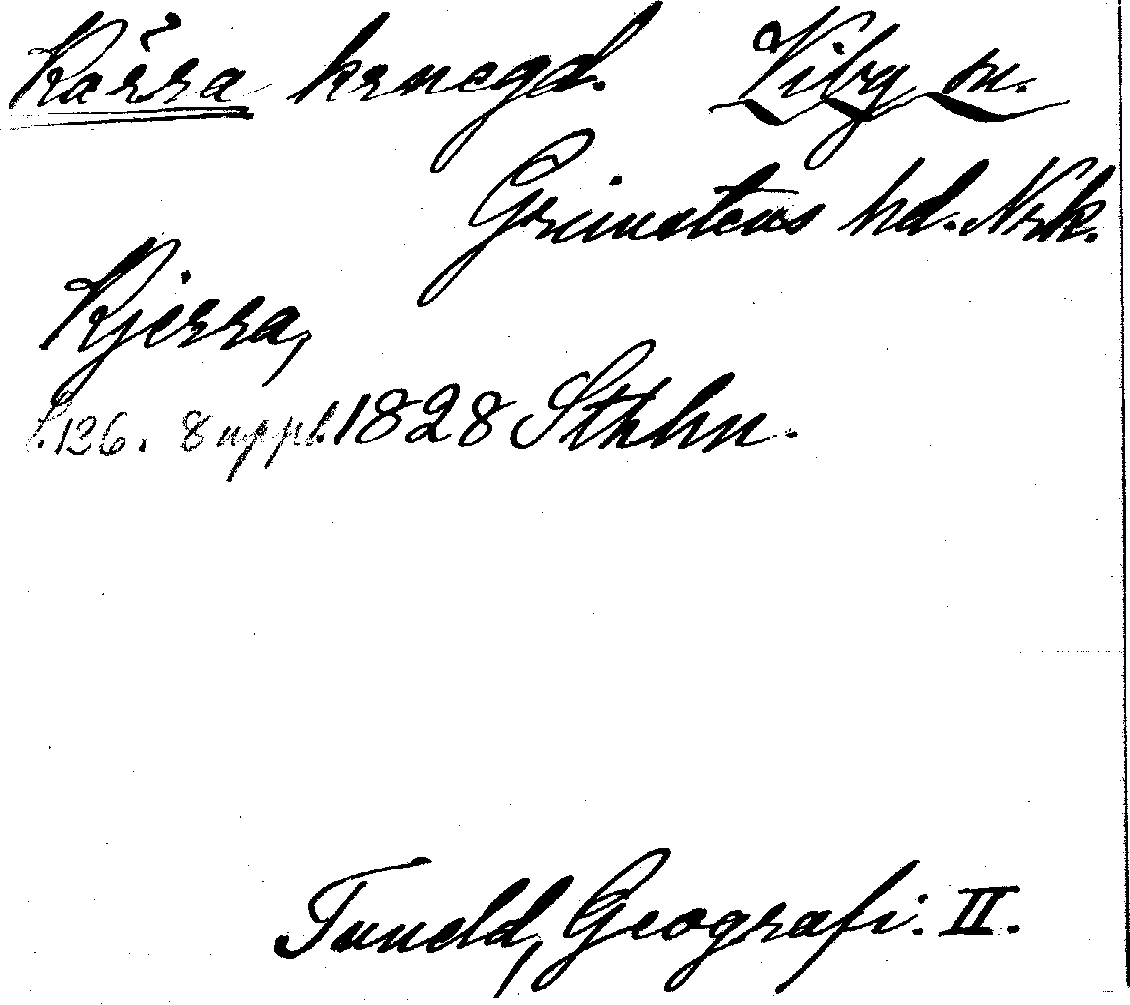 Kärra krnegd. Viby sn.
Grimstens hd. Nrk.
Kjerra,
s. 126. 8 uppl. 1828 Sthlm.
Tuneld, Geografi. II.